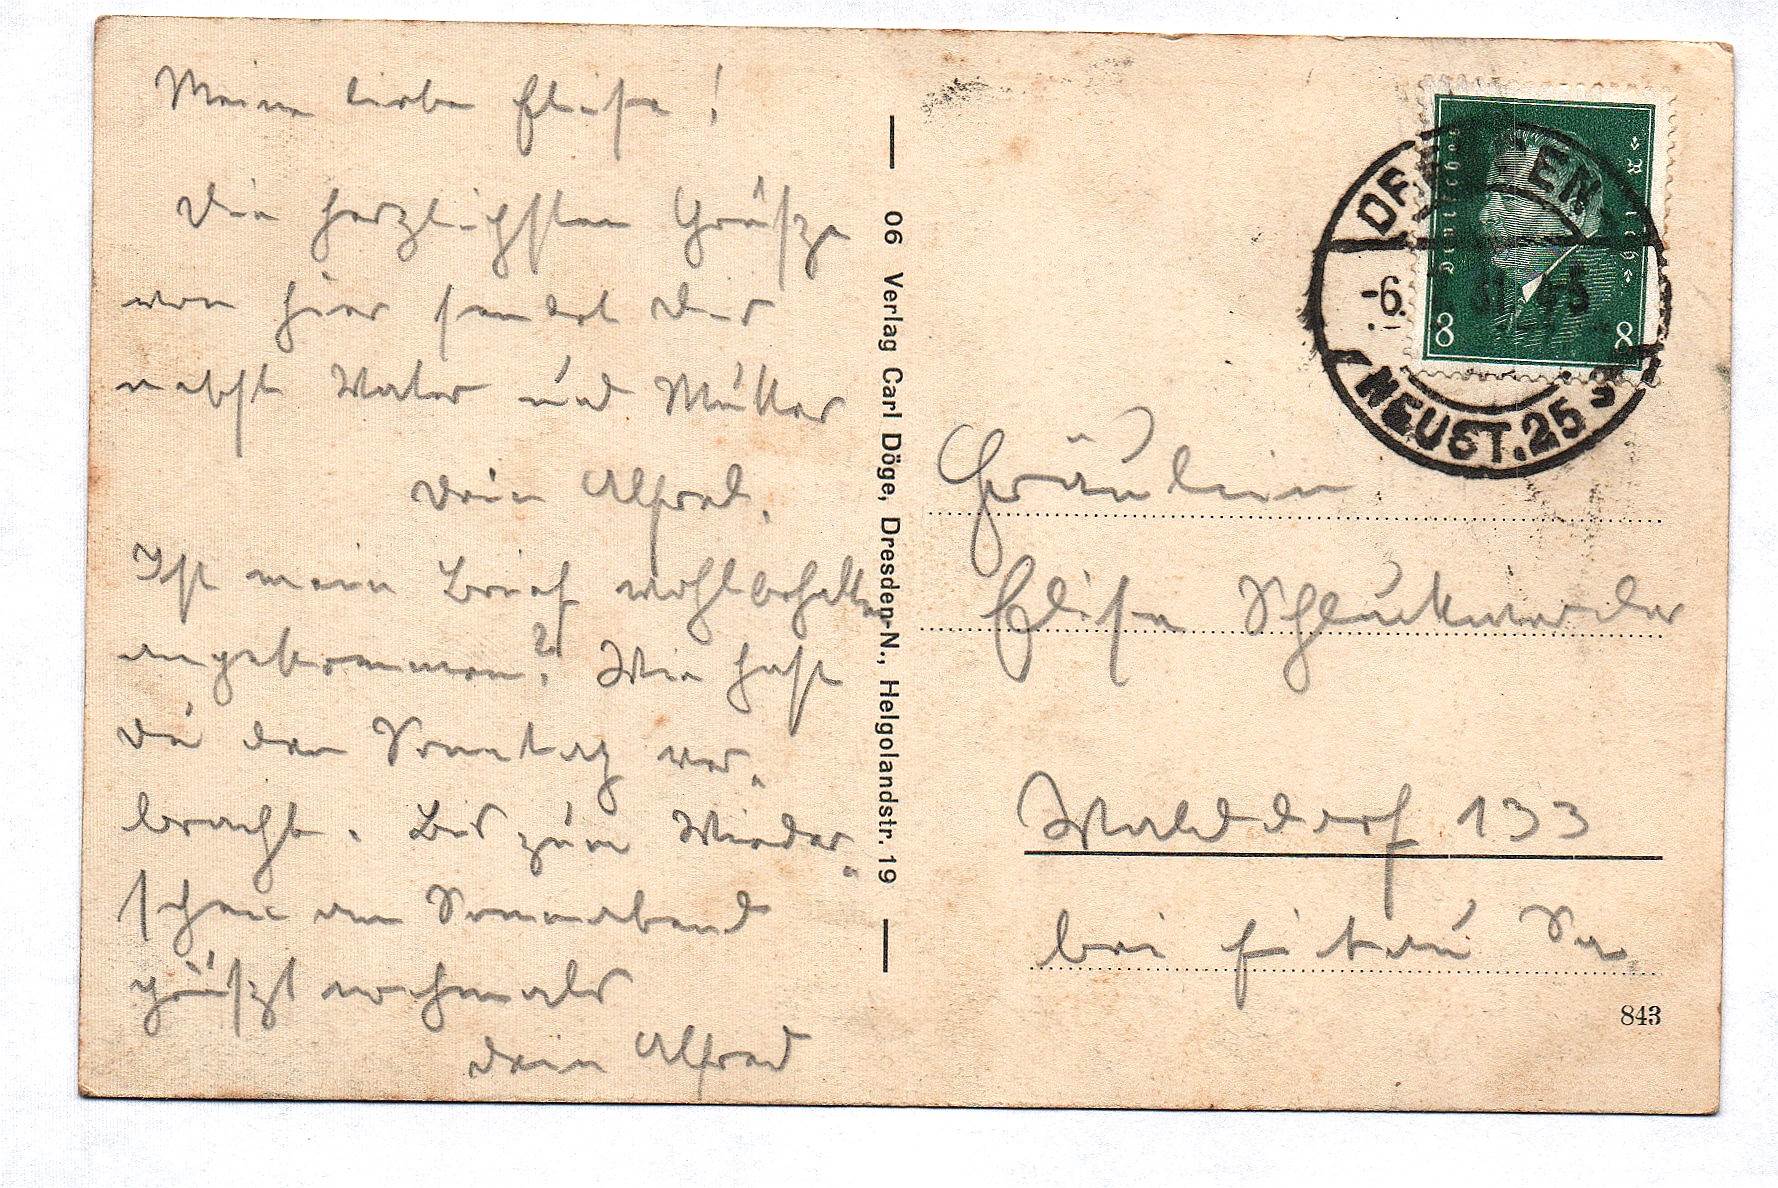 Meine liebe Elise!
Die herzlichsten Grüsze
von hier sendet Dir
nebst Vater und Mutter
Dein Alfred.
Ist mein Brief wohlbehalten
angekommen? Wie hast
Du den Sonntag ver-
bracht. Bis zum Wieder-
sehen am Sonnabend
grüszt nochmals
Dein Alfred
06 Verlag Carl Döge, Dresden-N., Helgolandstr. 19
Deutsches Reich
8 8
DRESDEN
-6.
NEUST. 25
Fräulein
Elise
Walddorf 133
bei Zittau Sa
843